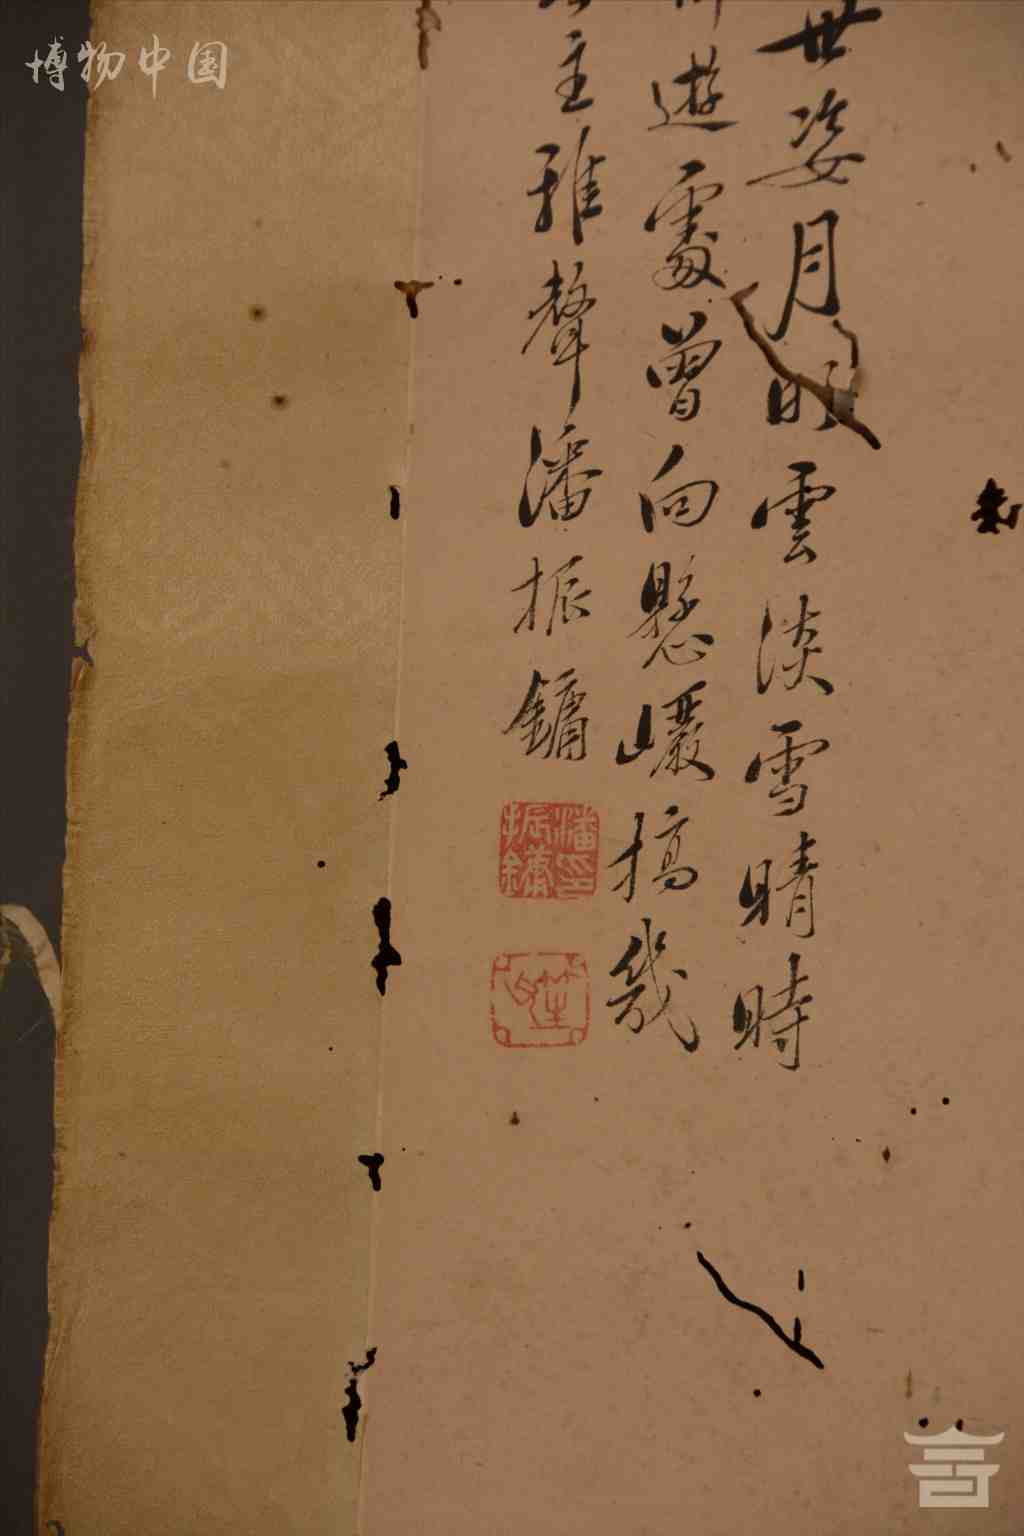 博物中国
世姿月明雲淡雪晴時
遊處曾向懸巖搞幾
主雅聲潘振鏞
潘印振鏞